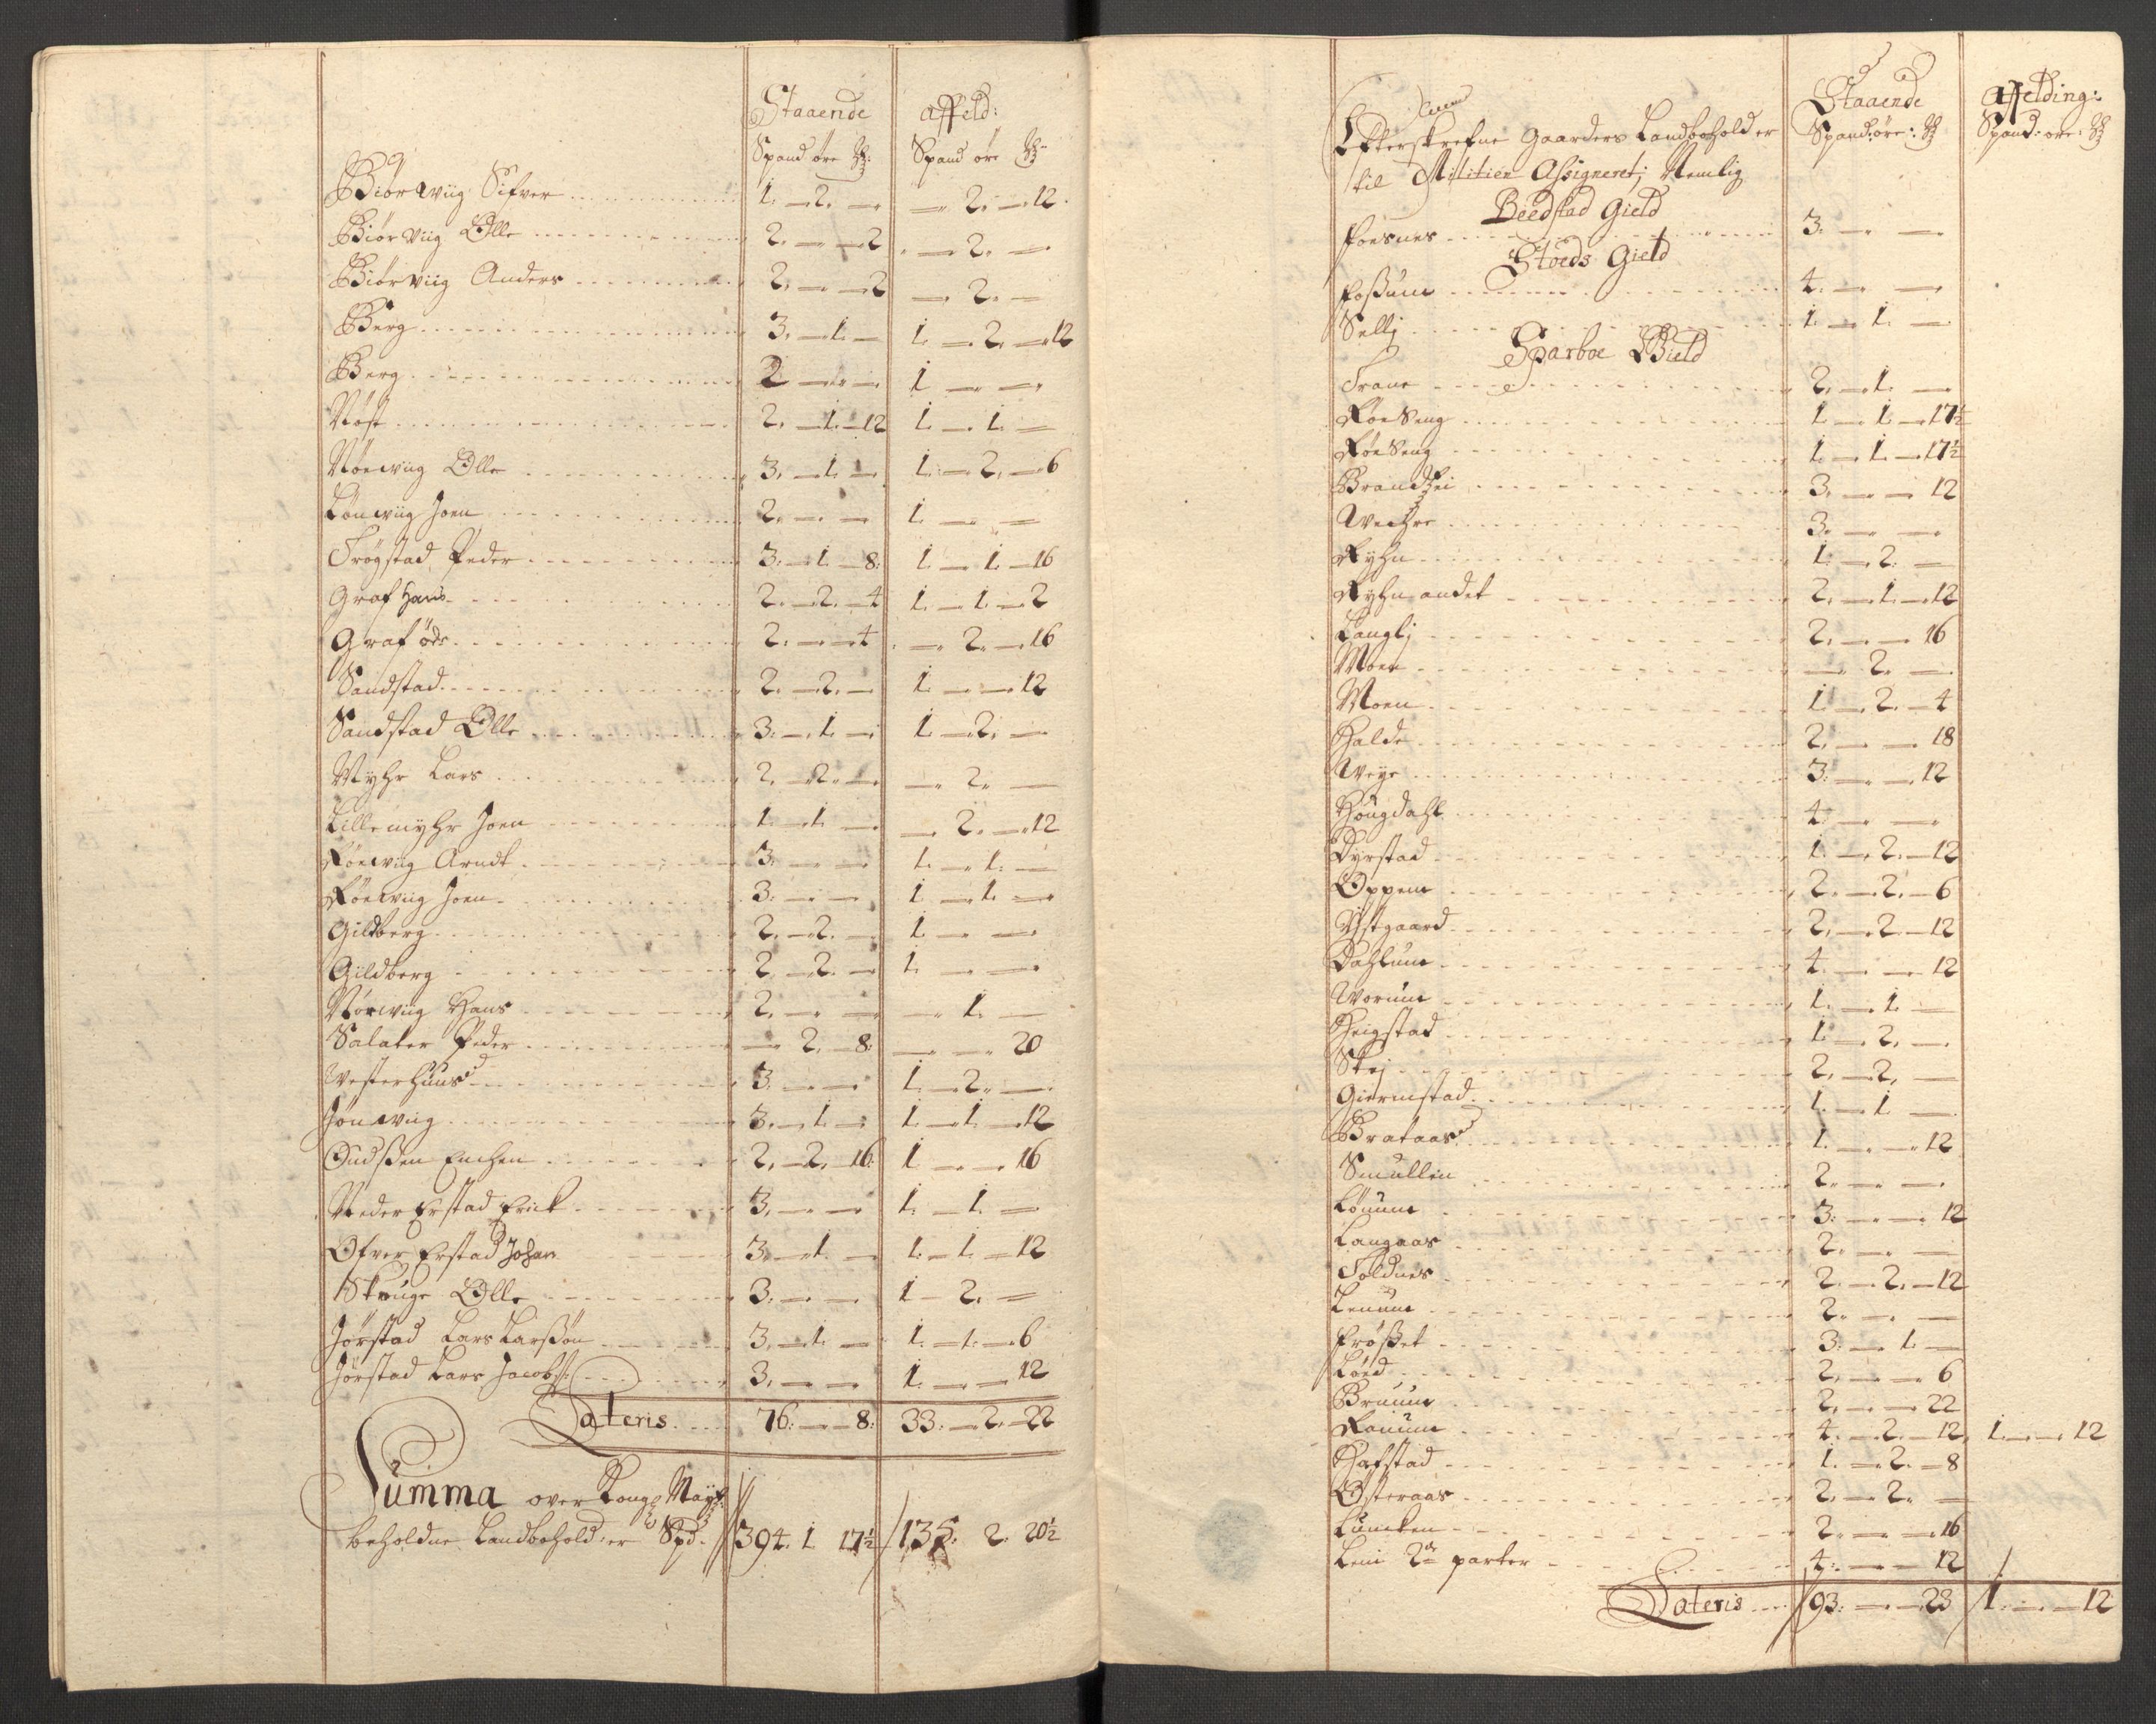 Staaende affeld:
Spand øre ℔: Spand øre ℔:
Biørwiig Sifver 1. — 2. — — 2. — 12.
Biørviig Olle 2. — — 2 — 2. —
Biørviig Anders 2. — — 2 — 2. —
Berg 3. — 1. — 1. — 2. — 12
Berg 2 — — 1 — —
Røst 2. — 1. — 12 1. — 1. —
Nørwiig Olle 3. — 1. — 1. — 2. — 6
Lønwiig Joen 2. — — 1. — —
Trøgstad Peder 3. — 1. — 8. 1. — 1. — 16
Graf Hans 2. — 2. — 4 1. — 1. — 2
Graf øde 2. — — 4 — 2. — 16
Sandstad 2. — 2. — 1. — — 12
Sandstad Olle 3. — 1. — 1. — 2. —
Myhr Lars 2. — 2. — — 2. —
Lillemyhr Joen 1. — 1. — — 2. — 12
Røewiig Arndt 3. — — 1. — 1. —
Røewiig Joen 3. — — 1. — 1. —
Gildberg 2. — 2. — 1. — —
Gildberg 2. — 2. — 1. — —
Nørwiig Hans 2. — — — 1. —
Salater Peder — 2. — 8. — — 20
Westerhuus 3. — — 1. — 2. —
Jønwiig 3. — 1. — 1. — 1. — 12
Gudßen Enchen 2. — 2. 16. 1 — — 16
Neder Erstad Erick 3. — — 1. — 1. —
Øfver Erstad Johan 3. — 1. — 1. — 1. — 12
Skruge Olle 3. — — 1 — 2. —
Jørstad Lars Larßøn 3. — 1. — 1. — 1. — 6
Jørstad Lars Jacobs: 3. — — 1. — — 12
Lateris 76. — — 8. 33. — 2. — 22
Summa over Kongl Mayts
beholdne Landbohold: er Spd. 394. 1 17½ 135. 2. 20½
Staaende Affelding:
Spand: øre: ℔ Spand: øre: ℔
Efterskrefne Gaarders Landbohold er
til Militien Assigneret; Nemlig
Beedstad Gield
Foesnes 3. — —
Stoeds Gield
Foßum 4. — —
Sellj 1. — 1. —
Sparboe Gield
Trane 2. — 1. —
Røeseng 1. — 1. — 17½
Røeseng 1. — 1. — 17½
Brandtzei 3. — — 12
Wæhre 3. — —
Ryhn 1. — 2. —
Ryhn andet 2. — 1. — 12
Langlj 2. — — 16
Moen — 2. —
Moen 1. — 2. — 4
Halde 2. — — 18
Weye 3. — — 12
Hougdahl 4 — —
Dyrstad 1. — 2. — 12
Oppem 2. — 2. — 6
Østgaard 2. — 2. — 12
Dahlum 4. — — 12
Worum 1. — 1. —
Heigstad 1. — 2. —
Skej 2. — 2. —
Giermstad 1. — 1 —
Brataas 1. — — 12
Smullin 2. — —
Lønum 3. — — 12
Langaas 2. — —
Toldnes 2. — 2. — 12
Lenum 2. — —
Frøßet 3. — 1. —
Løed 2. — — 6
Bruum 2. — — 22
Ranum 4. — 2. — 12, 1. — — 12
Hafstad 1. — 2. — 8
Østeraas 2. — 2. —
Luncken 2. — — 16
Lein 2de parter 4. — — 12
Lateris 93. — — 23 1. — — 12